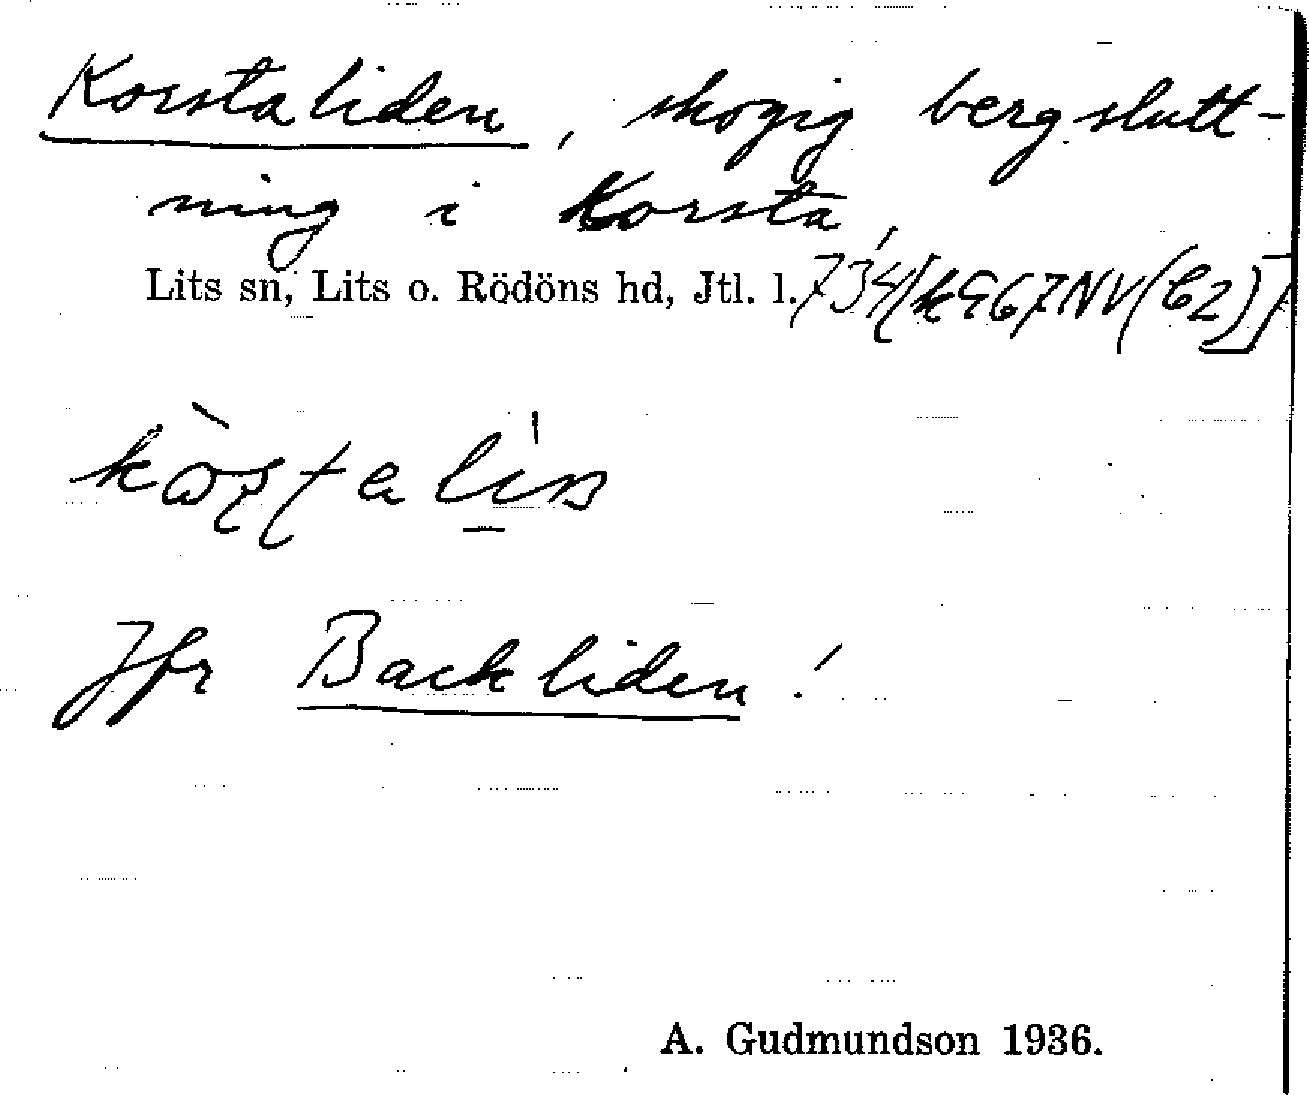 Korstaliden, skogig bergslutt-
ning i Korsta,
Lits sn, Lits o. Rödöns hd, Jtl. l.
Jfr Backliden!
A. Gudmundson 1936.